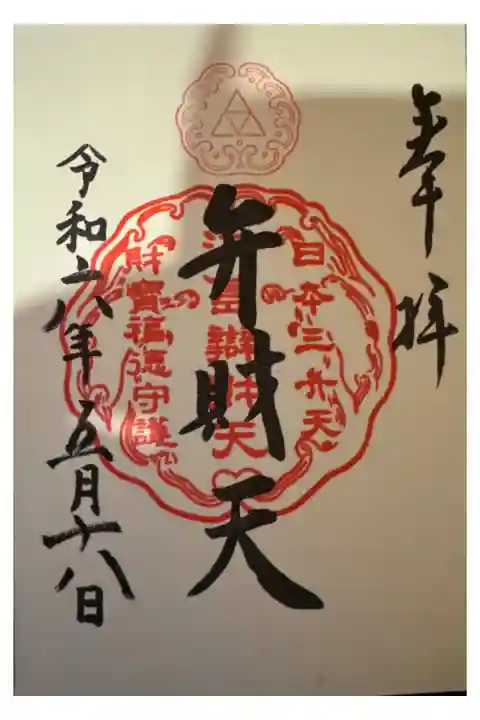 奉拝
日本三弁天
江島辨財天
財寶福徳守護
弁財天
令和六年五月十八日